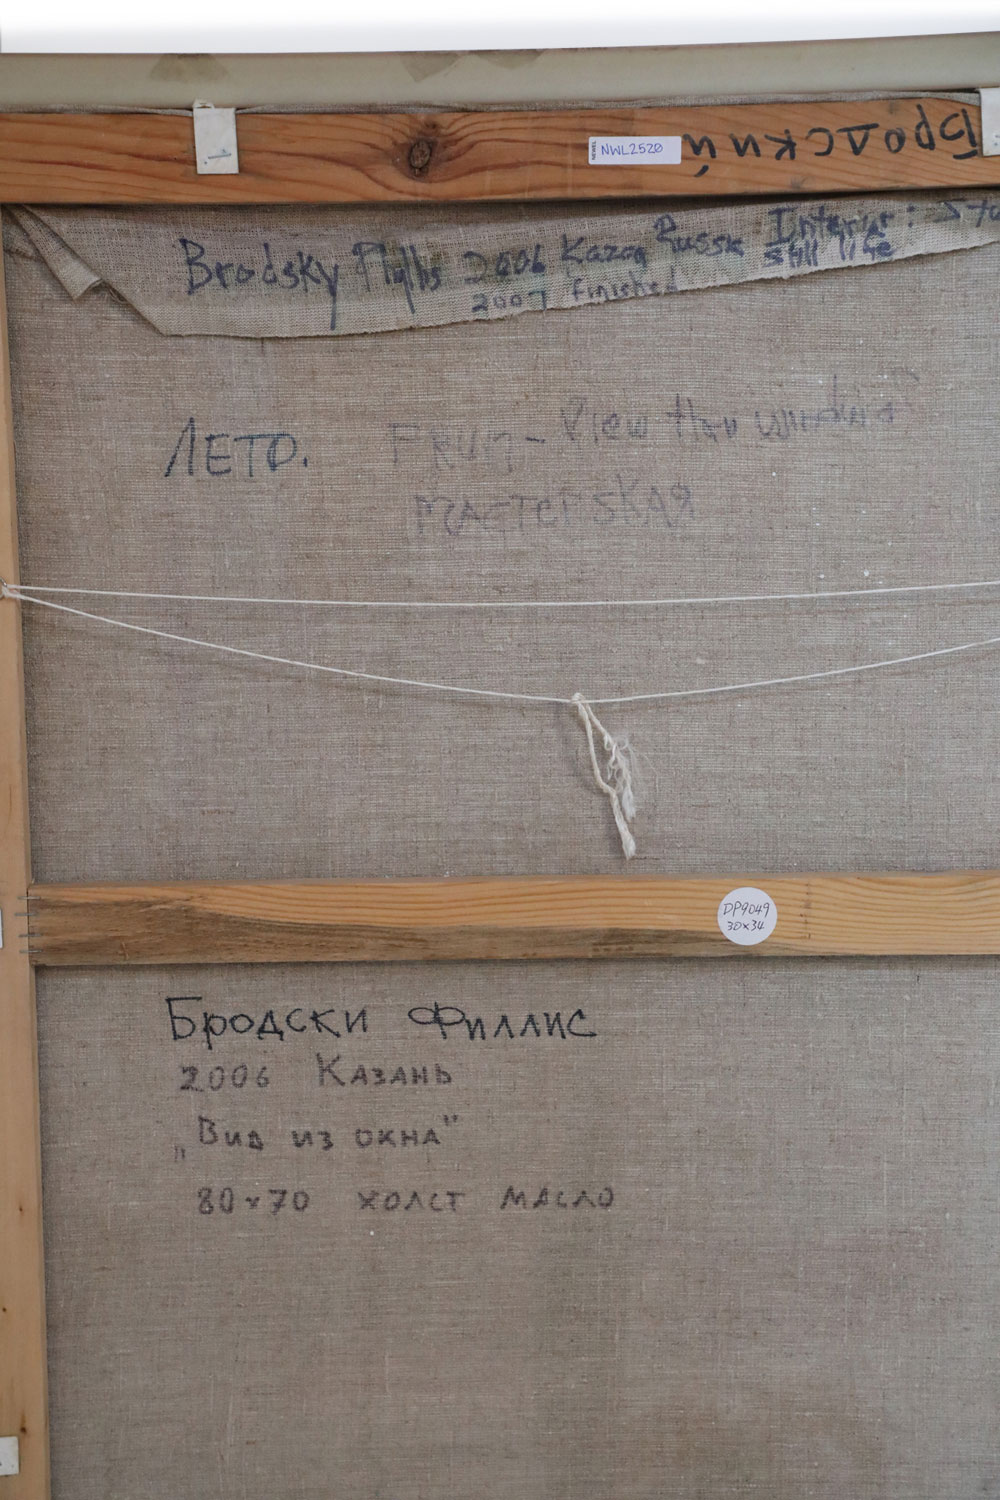 Бродский
NEWEL NWL2520
1
Brodsky Phyllis 2006 Kazan Russia Interior:
still life
2007 finished
ЛЕТО. From - View window
МАСТЕРSКАЯ
DP9049
30x34
Бродски Филлис
2006 Казань
„Вид из окна"
80x70 холст масло